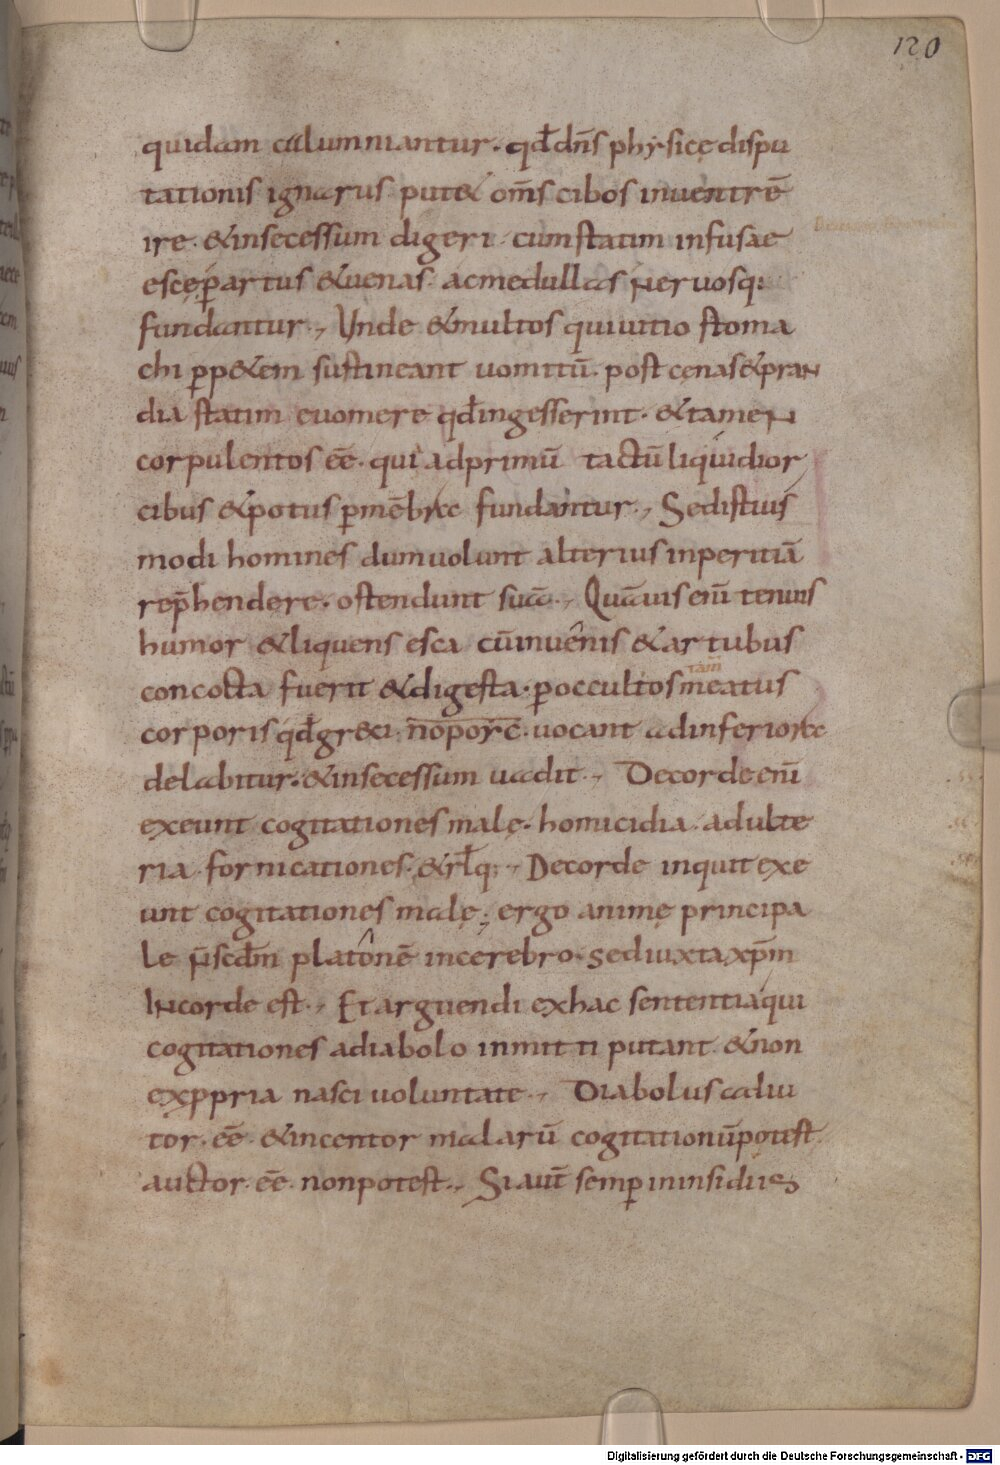 120
quidam calumniantur · qđ dn̄s physicę dispu
tationis ignarus put& om̄s cibos inuentrē
ire · &insecessum digeri · cumstatim infusae
escęp̄artus &uenas · acmedullas Neruosq:
fundantur ., Unde &multos quiuitio stoma
chi ꝑp&em sustineant uomitū · post cęnas&pran
dia statim euomere qđingesserint · &tameN
corpulentos eē · qui adprimū tactū liquidior
cibus &potus ꝑmēbra fundantur ., Sedistius
modi homines dumuolunt alterius inperitiā
rep̄hendere · ostendunt suā ., Quāuis eni̅ tenuis
humor &liquens esca cūinuenis &artubus
concocta fuerit &digesta · ꝑoccultos meatus
tam̄
corporis qđgreci noporc · uocant adinferiora
delabitur · &insecessum uadit ., Decorde eni̅
exeunt cogitationes malę · homicidia · adulte
ria · fornicationes · &rłq; ., Decorde inquit exe
unt cogitationes malę ; ergo animę principa
le n̄ scdm̄ platonē incerebro · sediuxta xp̄m
INcorde est ., Et arguendi exhac sententia qui
cogitationes adiabolo inmitti putant · &non
exꝓpria nasci uoluntate ., Diabolus adiu
tor · eē · &incentor malarū cogitationū potest
auctor · eē · nonpotest ., Siaut̄ semꝑ ininsidiis
Digitalisierung gefördert durch die Deutsche Forschungsgemeinschaft - DFG